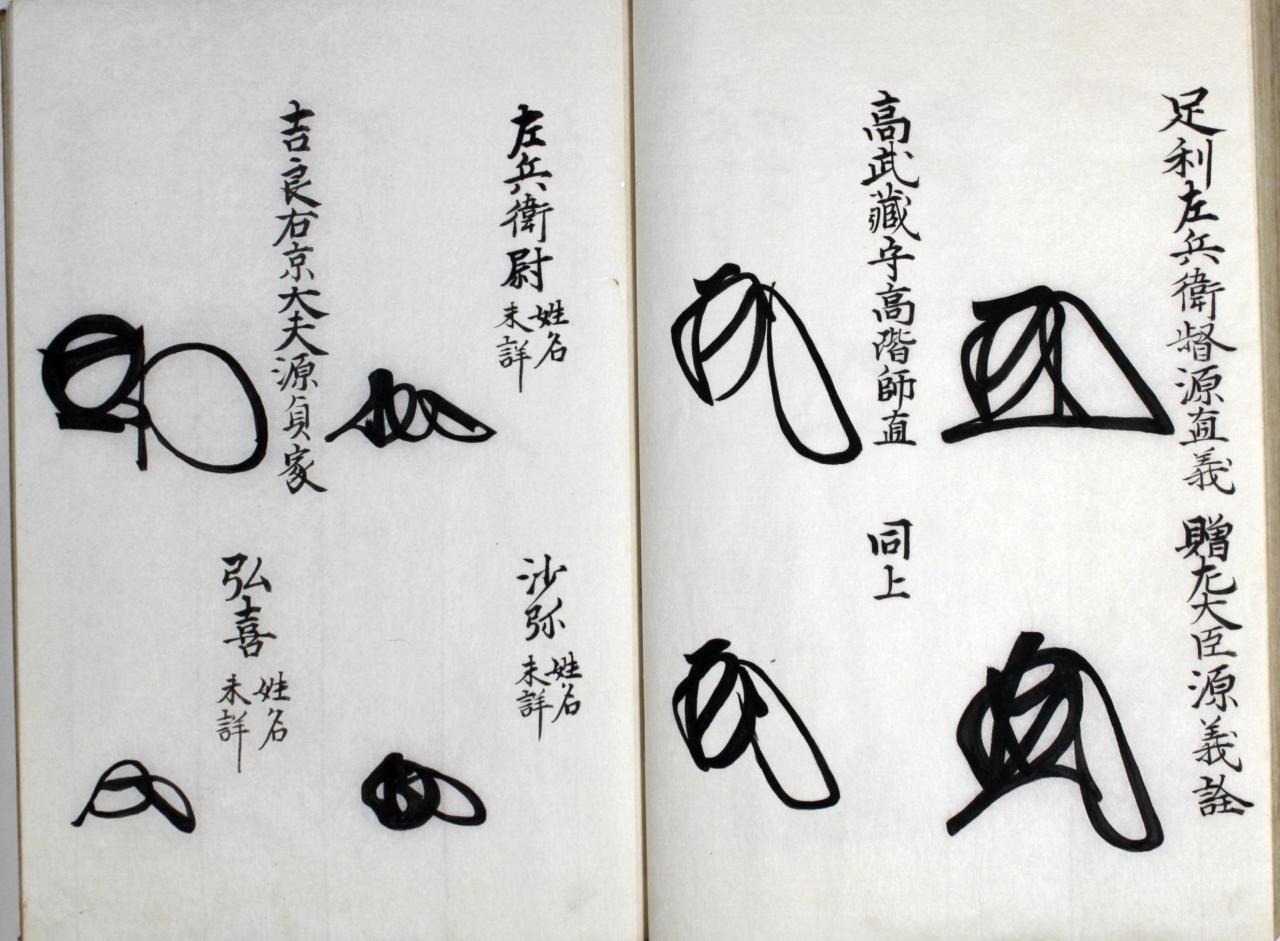 足利左兵衛督源直義
贈左大臣源義詮
高武藏守高階師直
同上
左兵衛尉
姓名
未詳
沙弥
姓名
未詳
吉良右京大夫源貞家
弘喜
姓名
未詳